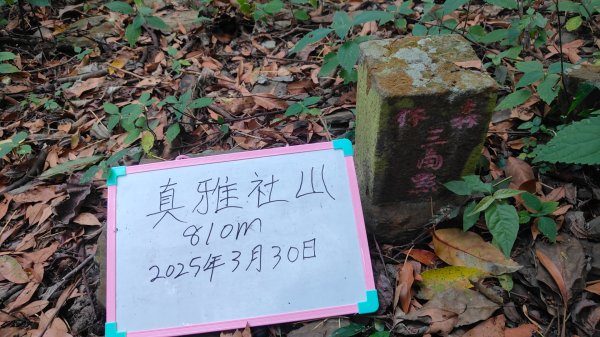 真雅社山
810m
2025年3月30日
森
三角點